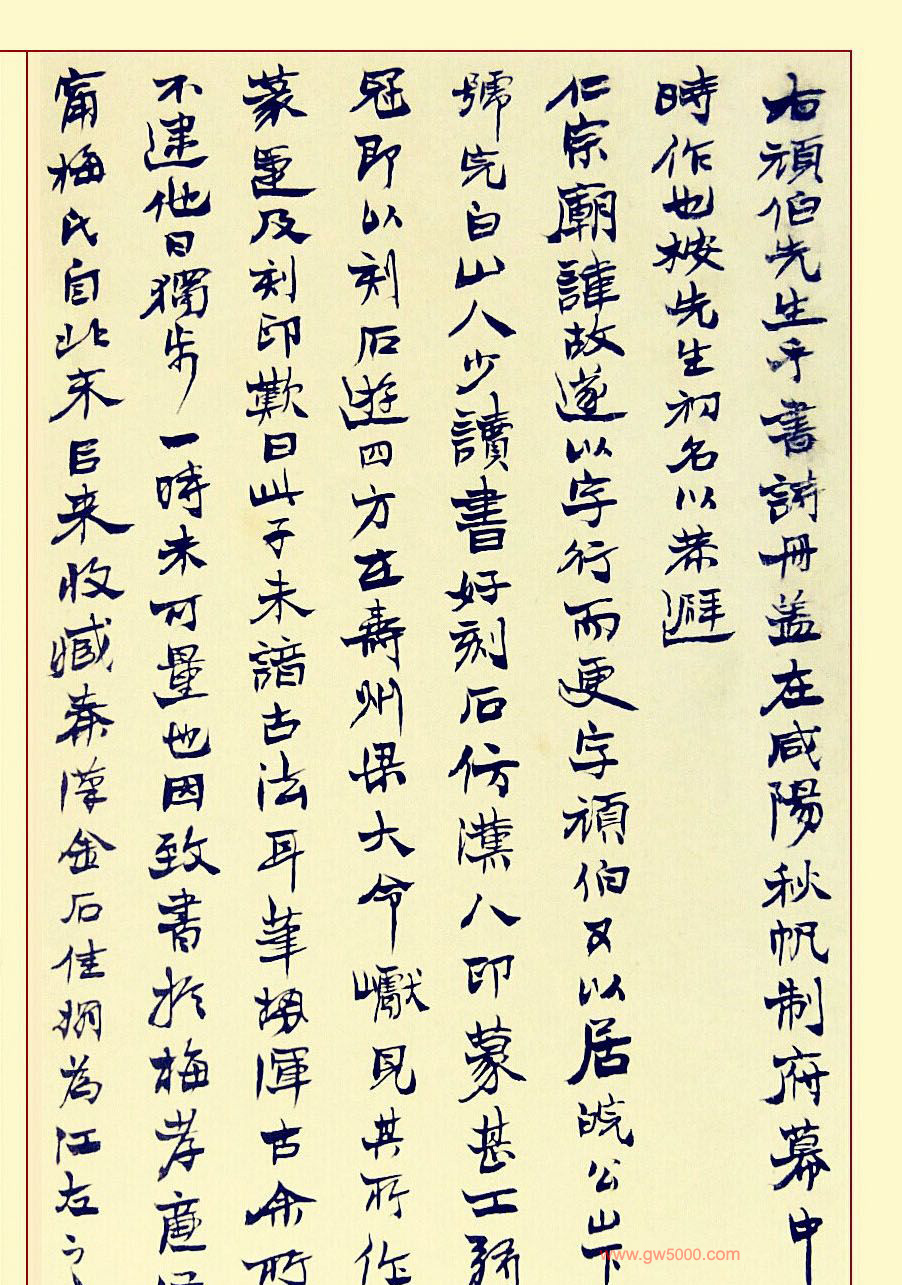 右頑伯先生手書詩冊盖在咸陽秋帆制府幕中
時作也按先生初名以恭避
仁宗廟諱故遂以字行而更字頑伯又以居皖公山下
號完白山人少讀書好刻石仿漢人印篆甚工弱
冠即以刻石遊四方在壽州梁大令巘見其所作
篆蹟及刻印歎曰此子未諳古法耳筆勢渾古余所
不逮他日獨步一時未可量也因致書於梅孝廉
甯梅氏自北宋以来收藏秦漢金石佳搨為江左之
www.gw5000.com